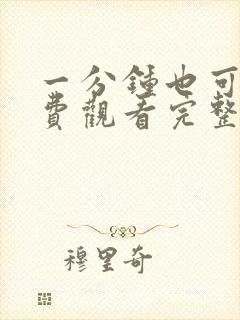 一分鍾也可
費觀看完整
穆里奇